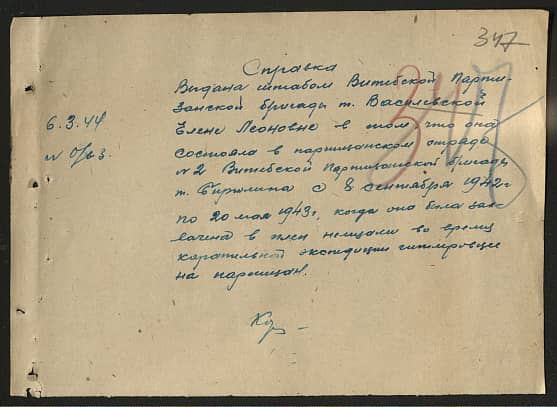 347
Справка
Выдана штабом Витебской Парти-
занской бригады т. Василевской
6.3.44
Елене Леоновне в том, что она
состояла в партизанском отряде
№ 2 Витебской Партизанской бригады
т. Бирюлина с 8 сентября 1942 г
по 20 мая 1943 г, когда она была зах-
вачена в плен немцами во время
карательной экспедиции гитлеровцев
на партизан.
347